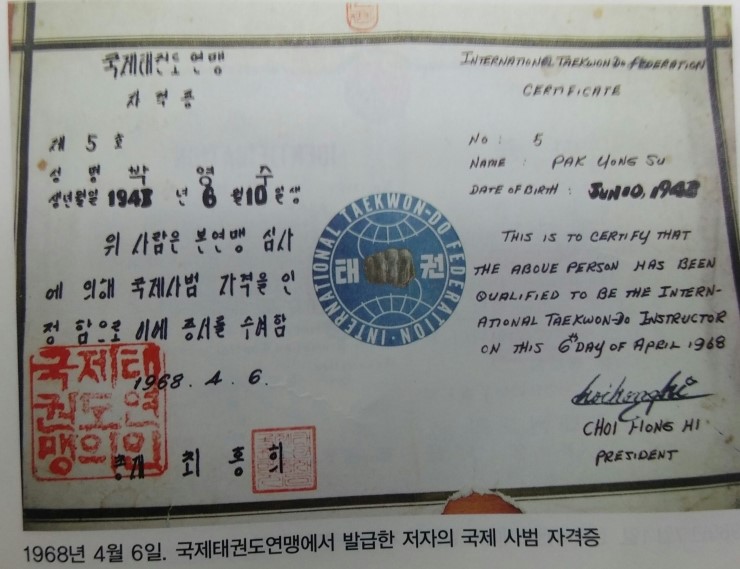 국제태권도연맹
자격증
제 5 호
성 명 박 영 수
생년월일 1943 년 6 월 10 일생
위 사람은 본연맹 심사
에 의해 국제사범 자격을 인
정 함으로 이에 증서를 수여함
1968. 4. 6.
총재 최 홍 희
국제태
권도연
맹의인
INTERNATIONAL TAEKWON-DO FEDERATION
태 권
INTERNATIONAL TAEKWON-DO FEDERATION
CERTIFICATE
NO : 5
NAME : PAK YONG SU
DATE OF BIRTH : JUN 10, 1943
THIS IS TO CERTIFY THAT
THE ABOVE PERSON HAS BEEN
QUALIFIED TO BE THE INTERN-
ATIONAL TAEKWON-DO INSTRUCTOR
ON THIS 6th DAY OF APRIL 1968
choihonghi
CHOI HONG HI
PRESIDENT
1968년 4월 6일. 국제태권도연맹에서 발급한 저자의 국제 사범 자격증